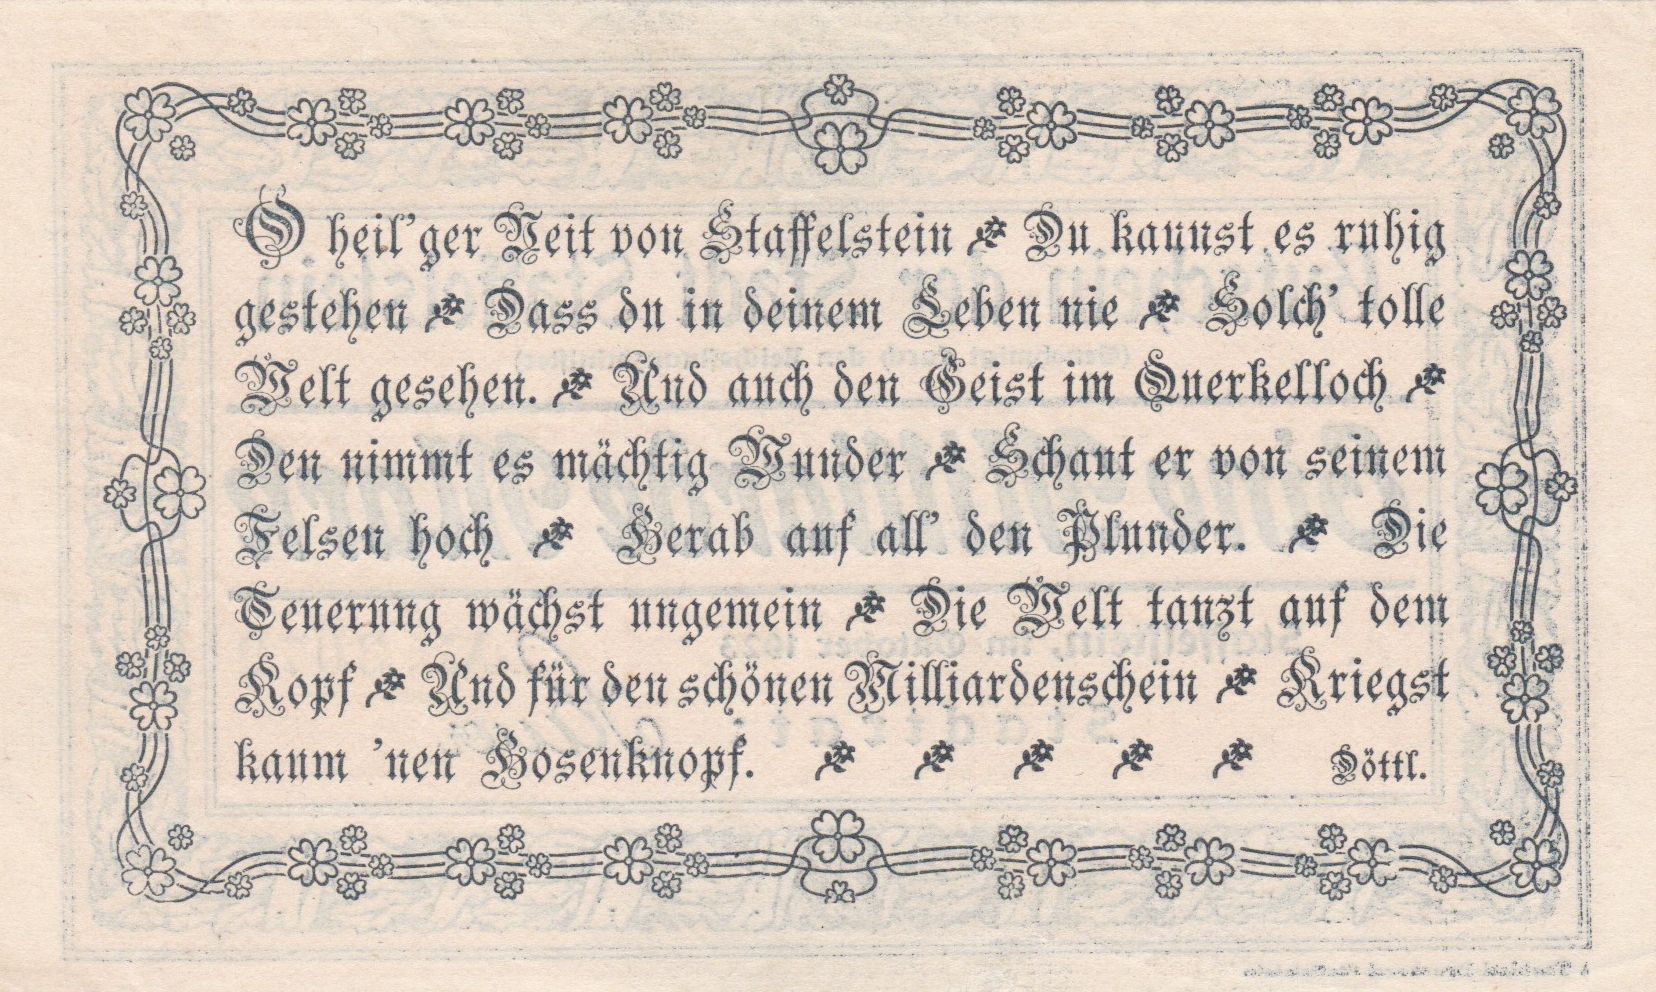 O heil'ger Veit von Staffelstein Du kannst es ruhig
gestehen Dass du in deinem Leben nie Solch' tolle
Welt gesehen. Und auch den Geist im Querkelloch
Den nimmt es mächtig Wunder Schaut er von seinem
Felsen hoch Herab auf all' den Plunder. Die
Teuerung wächst ungemein Die Welt tanzt auf dem
Kopf Und für den schönen Milliardenschein Kriegst
kaum 'nen Hosenknopf. Döttl.